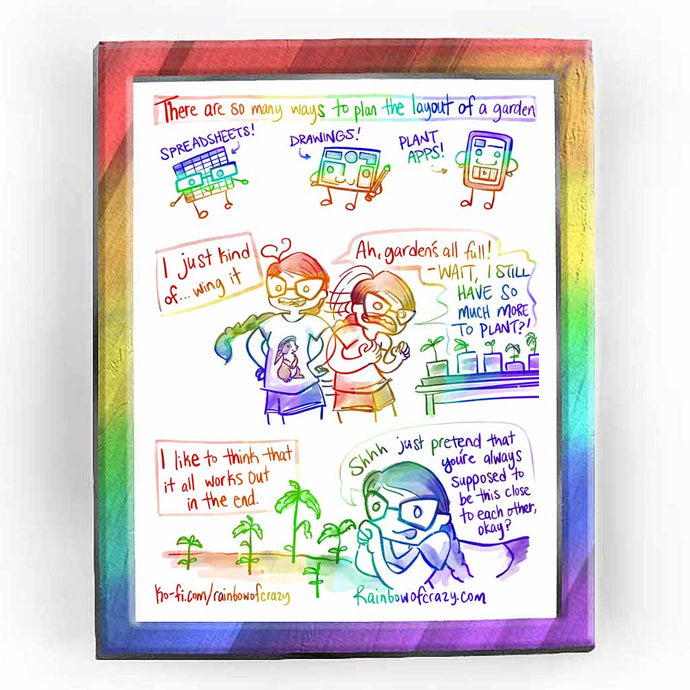 There are so many ways to plan the layout of a garden
SPREADSHEETS!
DRAWINGS!
PLANT
APPS!
I just kind
of... wing it
Ah, garden's all full!
-WAIT, I STILL
HAVE SO
MUCH MORE
TO PLANT?!
I like to think that
it all works out
in the end.
Shhh just pretend that
you're always
supposed to
be this close
to each other,
okay?
Ko-fi.com/rainbowofcrazy
Rainbowofcrazy.com